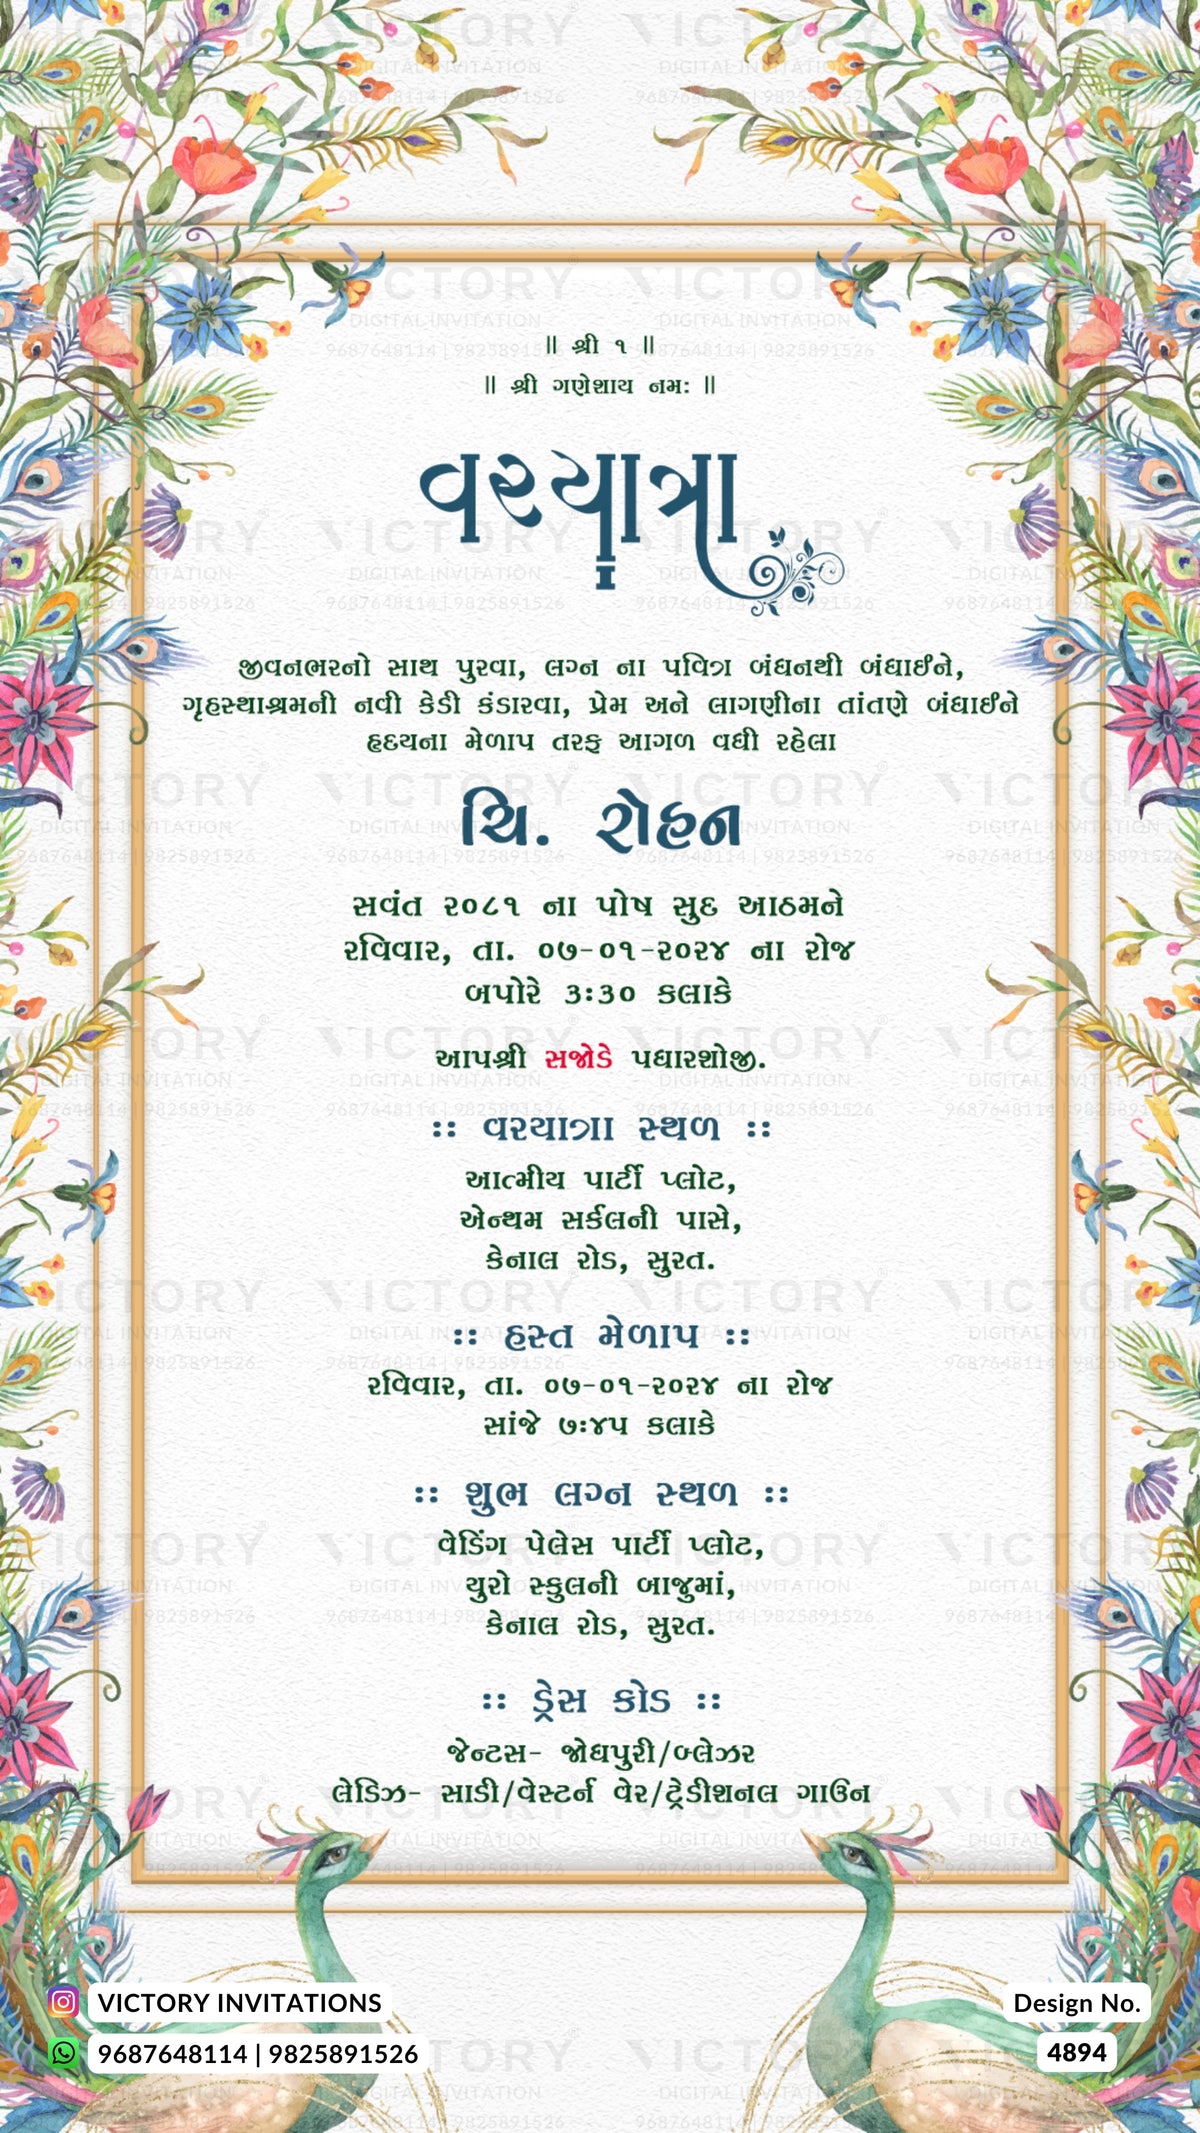 ॥ શ્રી ૧ ॥
॥ શ્રી ગણેશાય નમઃ ॥
વરયાત્રા
જીવનભરનો સાથ પુરવા, લગ્ન ના પવિત્ર બંધનથી બંધાઈને,
ગૃહસ્થાશ્રમની નવી કેડી કંડારવા, પ્રેમ અને લાગણીના તાંતણે બંધાઈને
હૃદયના મેળાપ તરફ આગળ વધી રહેલા
ચિ. રોહન
સવંત ૨૦૮૧ ના પોષ સુદ આઠમને
રવિવાર, તા. ૦૭-૦૧-૨૦૨૪ ના રોજ
બપોરે ૩:૩૦ કલાકે
આપશ્રી સજોડે પધારશોજી.
:: વરયાત્રા સ્થળ ::
આત્મીય પાર્ટી પ્લોટ,
એન્થમ સર્કલની પાસે,
કેનાલ રોડ, સુરત.
:: હસ્ત મેળાપ ::
રવિવાર, તા. ૦૭-૦૧-૨૦૨૪ ના રોજ
સાંજે ૭:૪૫ કલાકે
:: શુભ લગ્ન સ્થળ ::
વેડિંગ પેલેસ પાર્ટી પ્લોટ,
યુરો સ્કુલની બાજુમાં,
કેનાલ રોડ, સુરત.
:: ડ્રેસ કોડ ::
જેન્ટસ- જોધપુરી/બ્લેઝર
લેડિઝ- સાડી/વેસ્ટર્ન વેર/ટ્રેડીશનલ ગાઉન
VICTORY INVITATIONS
9687648114 | 9825891526
Design No.
4894
VICTORY
DIGITAL INVITATION
9687648114 | 9825891526